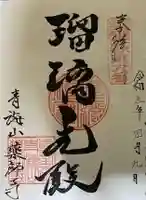 奉拝
令和三年四月九日
瑠璃光殿
青海山薬師寺